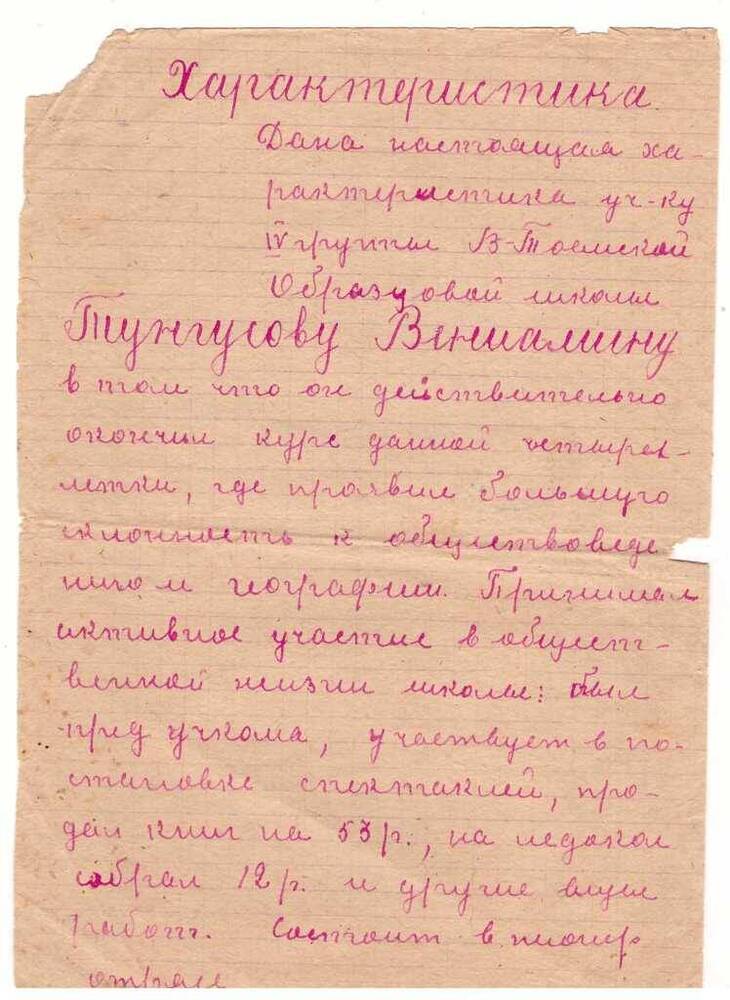 Характеристика
Дана настоящая ха-
рактеристика уч-ку
IV группы В-Тоемской
Образцовой школы
Тунгусову Вениамину
в том что он действительно
окончил курс данной четырех-
летки, где проявил большую
склонность к обществоведе
нию и географии. Принимал
активное участие в общест-
венной жизни школы: был
пред учкома, участвует в по-
становке спектаклей, про-
дал книг на 53 р., на ледокол
собрал 12 р. и другие виды
работ. Состоит в пионер
отряде